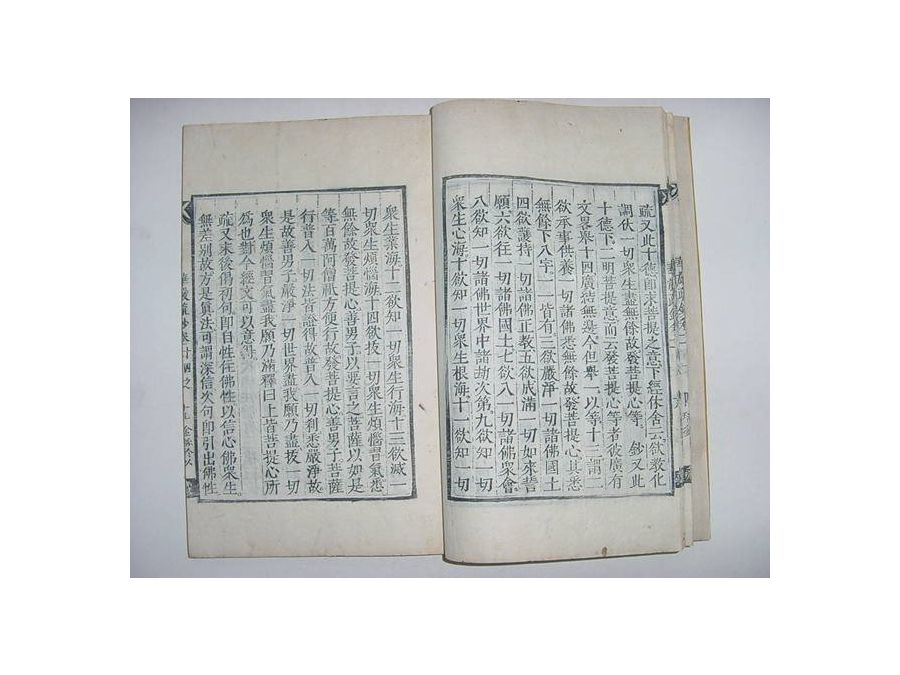 疏又此十德即求菩提之意下經休舍云欲教化
調伏一切衆生盡無餘故發菩提心等 鈔又此
十德下二明菩提意而云發菩提心等者彼廣有
文畧舉十四廣結無邊今但舉一以等十三謂二
欲承事供養一切諸佛悉無餘故發菩提心具悉
無餘下八字一一皆有三欲嚴淨一切諸佛國土
四欲護持一切諸佛正教五欲成滿一切如來誓
願六欲往一切諸佛國土七欲入一切諸佛衆會
八欲知一切諸佛世界中諸劫次第九欲知一切
衆生心海十欲知一切衆生根海十一欲知一切
衆生業海十二欲知一切衆生行海十三欲滅一
切衆生煩惱海十四欲拔一切衆生煩惱習氣悉
無餘故發菩提心善男子以要言之菩薩以如是
等百萬阿僧祇方便行故發菩提心善男子菩薩
行普入一切法皆證得故普入一切刹悉嚴淨故
是故善男子嚴淨一切世界盡我願乃盡拔一切
衆生煩惱習氣盡我願乃滿釋曰上皆菩提心所
爲也對今經文可以意得
疏又末後偈初句即自性住佛性以信心佛衆生
無差別故方是眞法可謂深信次句即引出佛性
華嚴疏鈔卷十四之